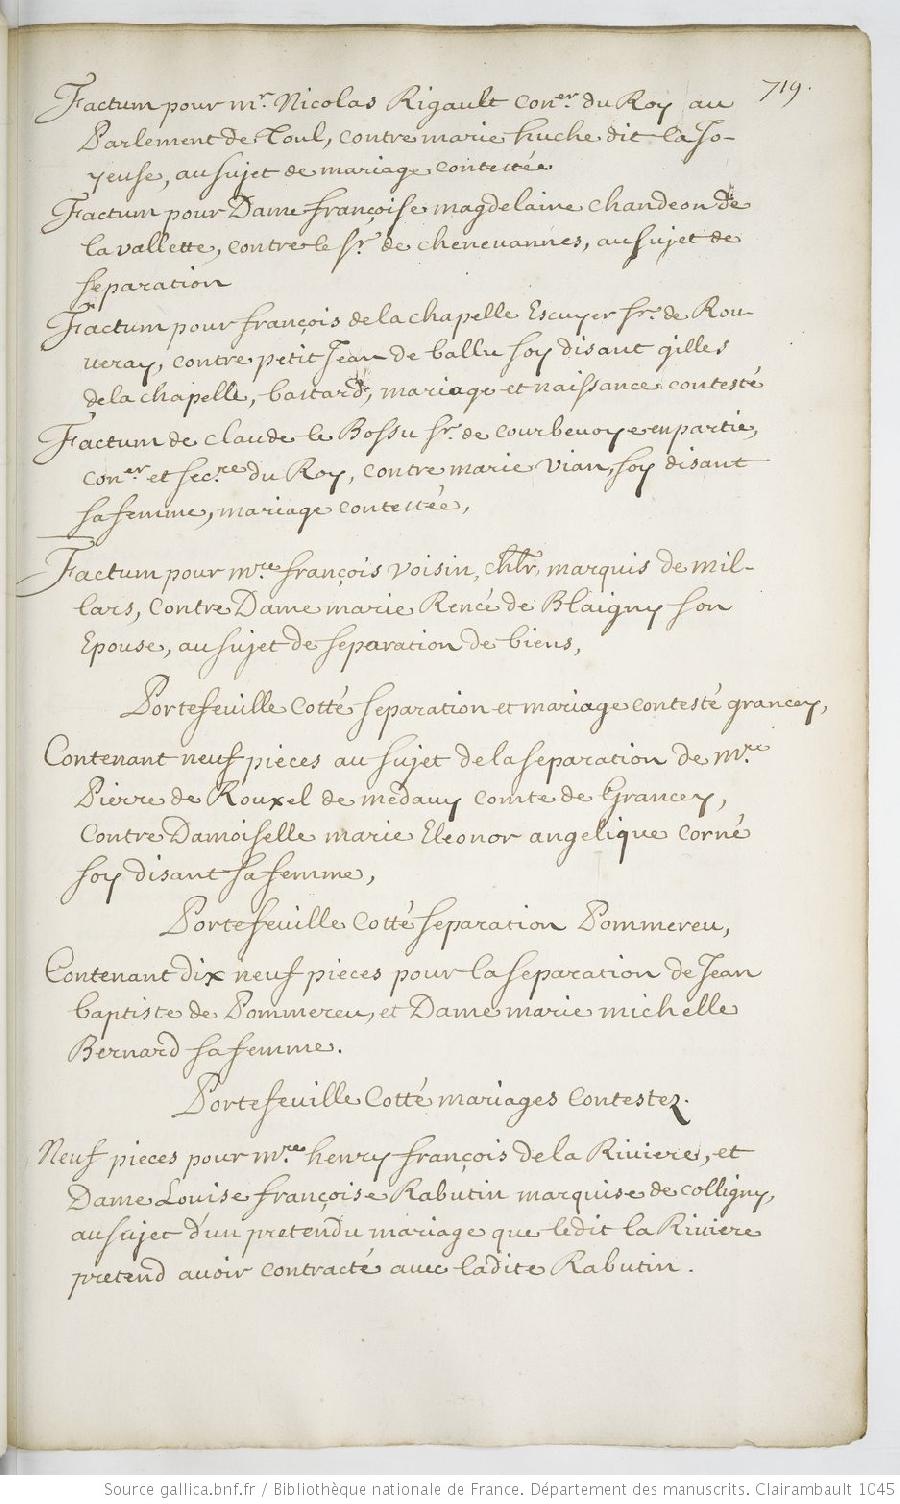 719.
Factum pour mr. Nicolas Rigault coner. du Roy au
Parlement de Toul, contre marie huche dit la Jo-
yeuse, au sujet de mariage contestée
Factum pour Dame françoise magdelaine chandeon de
la vallette, contre le sr. de chenevannes, au sujet de
separation
Factum pour françois de la chapelle Escuyer sr. de Rou-
veray, contre petit Jean de ballu soy disant gilles
de la chapelle, bastard, mariage et naissance contesté
Factum de claude le Bossu sr. de courbevoye en partie,
coner. et secre. du Roy, contre marie vian, soy disant
sa femme, mariage contestée,
Factum pour mre. françois voisin, chlr, marquis de mil-
lars, contre Dame marie Renée de Blaigny son
Epouse, au sujet de separation de biens,
Portefeuille cotté separation et mariage contesté grancey,
Contenant neuf pieces au sujet de la separation de mre.
Pierre de Rouxel de medavy comte de Grancey,
contre Damoiselle marie Eleonor angelique corné
soy disant sa femme,
Portefeuille cotté separation Pommereu,
Contenant dix neuf pieces pour la separation de Jean
baptiste de Pommereu, et Dame marie michelle
Bernard sa femme.
Portefeuille cotté mariages contestez.
Neuf pieces pour mre. henry françois de la Riviere, et
Dame Louise françoise Rabutin marquise de colligny,
au sujet d'un pretendu mariage que ledit la Riviere
pretend avoir contracté avec ladite Rabutin.
Source gallica.bnf.fr / Bibliothèque nationale de France. Département des manuscrits. Clairambault 1045